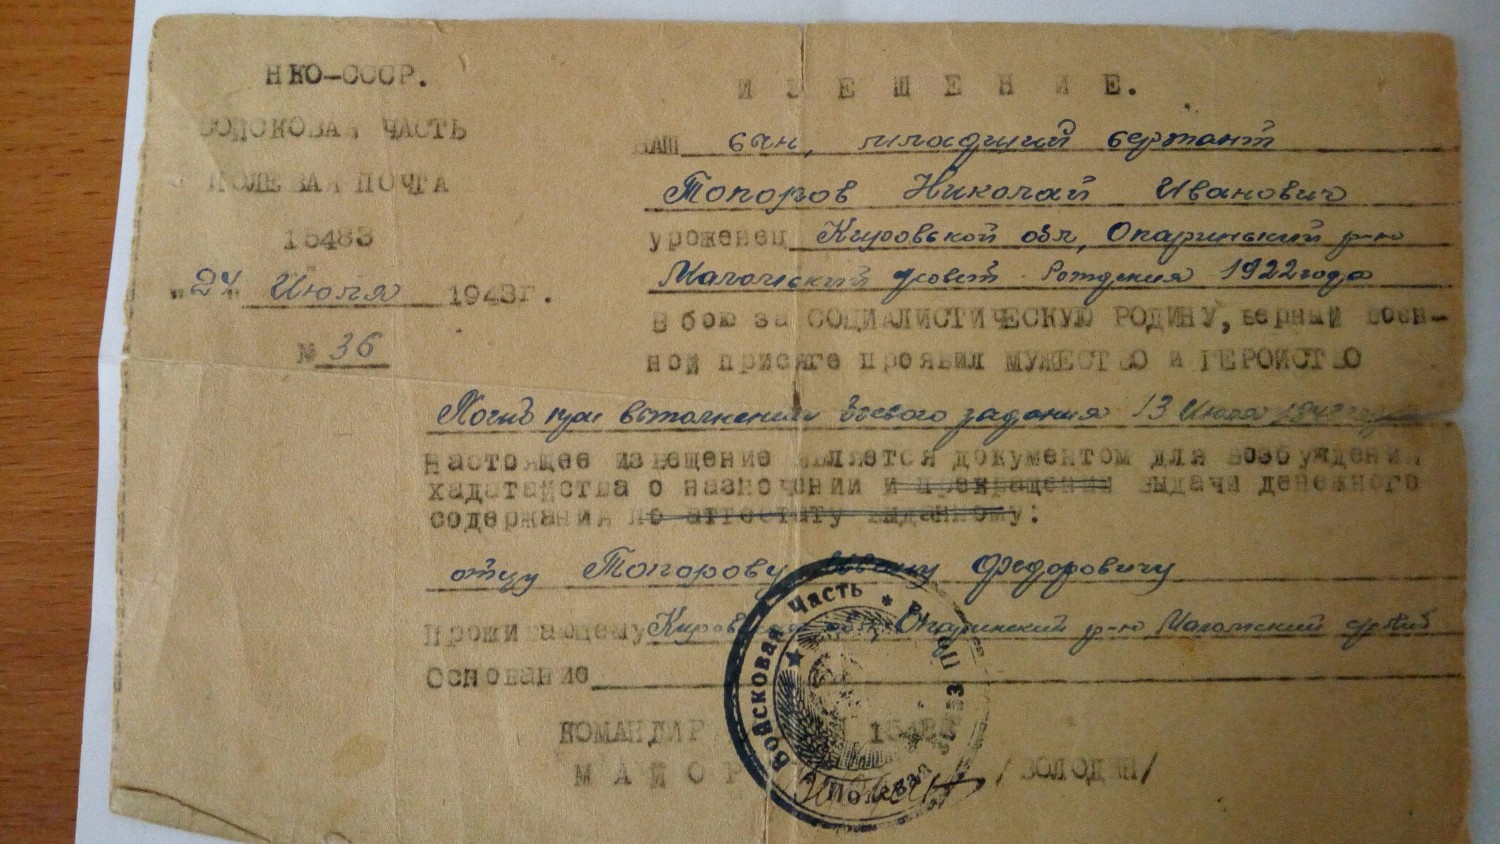 НКО-СССР.
ВОЙСКОВАЯ ЧАСТЬ
ПОЛЕВАЯ ПОЧТА
15483
"24" Июля 1943г.
№ 36
ИЗВЕЩЕНИЕ.
ВАШ сын, младший сержант
Топоров Николай Иванович
уроженец Кировской обл, Опаринский р-ю
сровет Рождения 1922 года
В бою за СОЦИАЛИСТИЧЕСКУЮ РОДИНУ, верный воен-
ной присяге проявил МУЖЕСТВО и ГЕРОЙСТВО
Погиб при выполнении боевого задания 13 Июля 1943 года
Настоящее извещение является документом для возбуждения
хадатайства о назночении и прекращении выдачи денежного
содержания по аттестату выданному:
отцу Топорову Ивану Федоровичу
Проживающему Кировская обл Опаринский р-ю
Основание
КОМАНДИР 15483
МАЙОР /ВОЛОДИН/
Войсковая Часть * Полевая